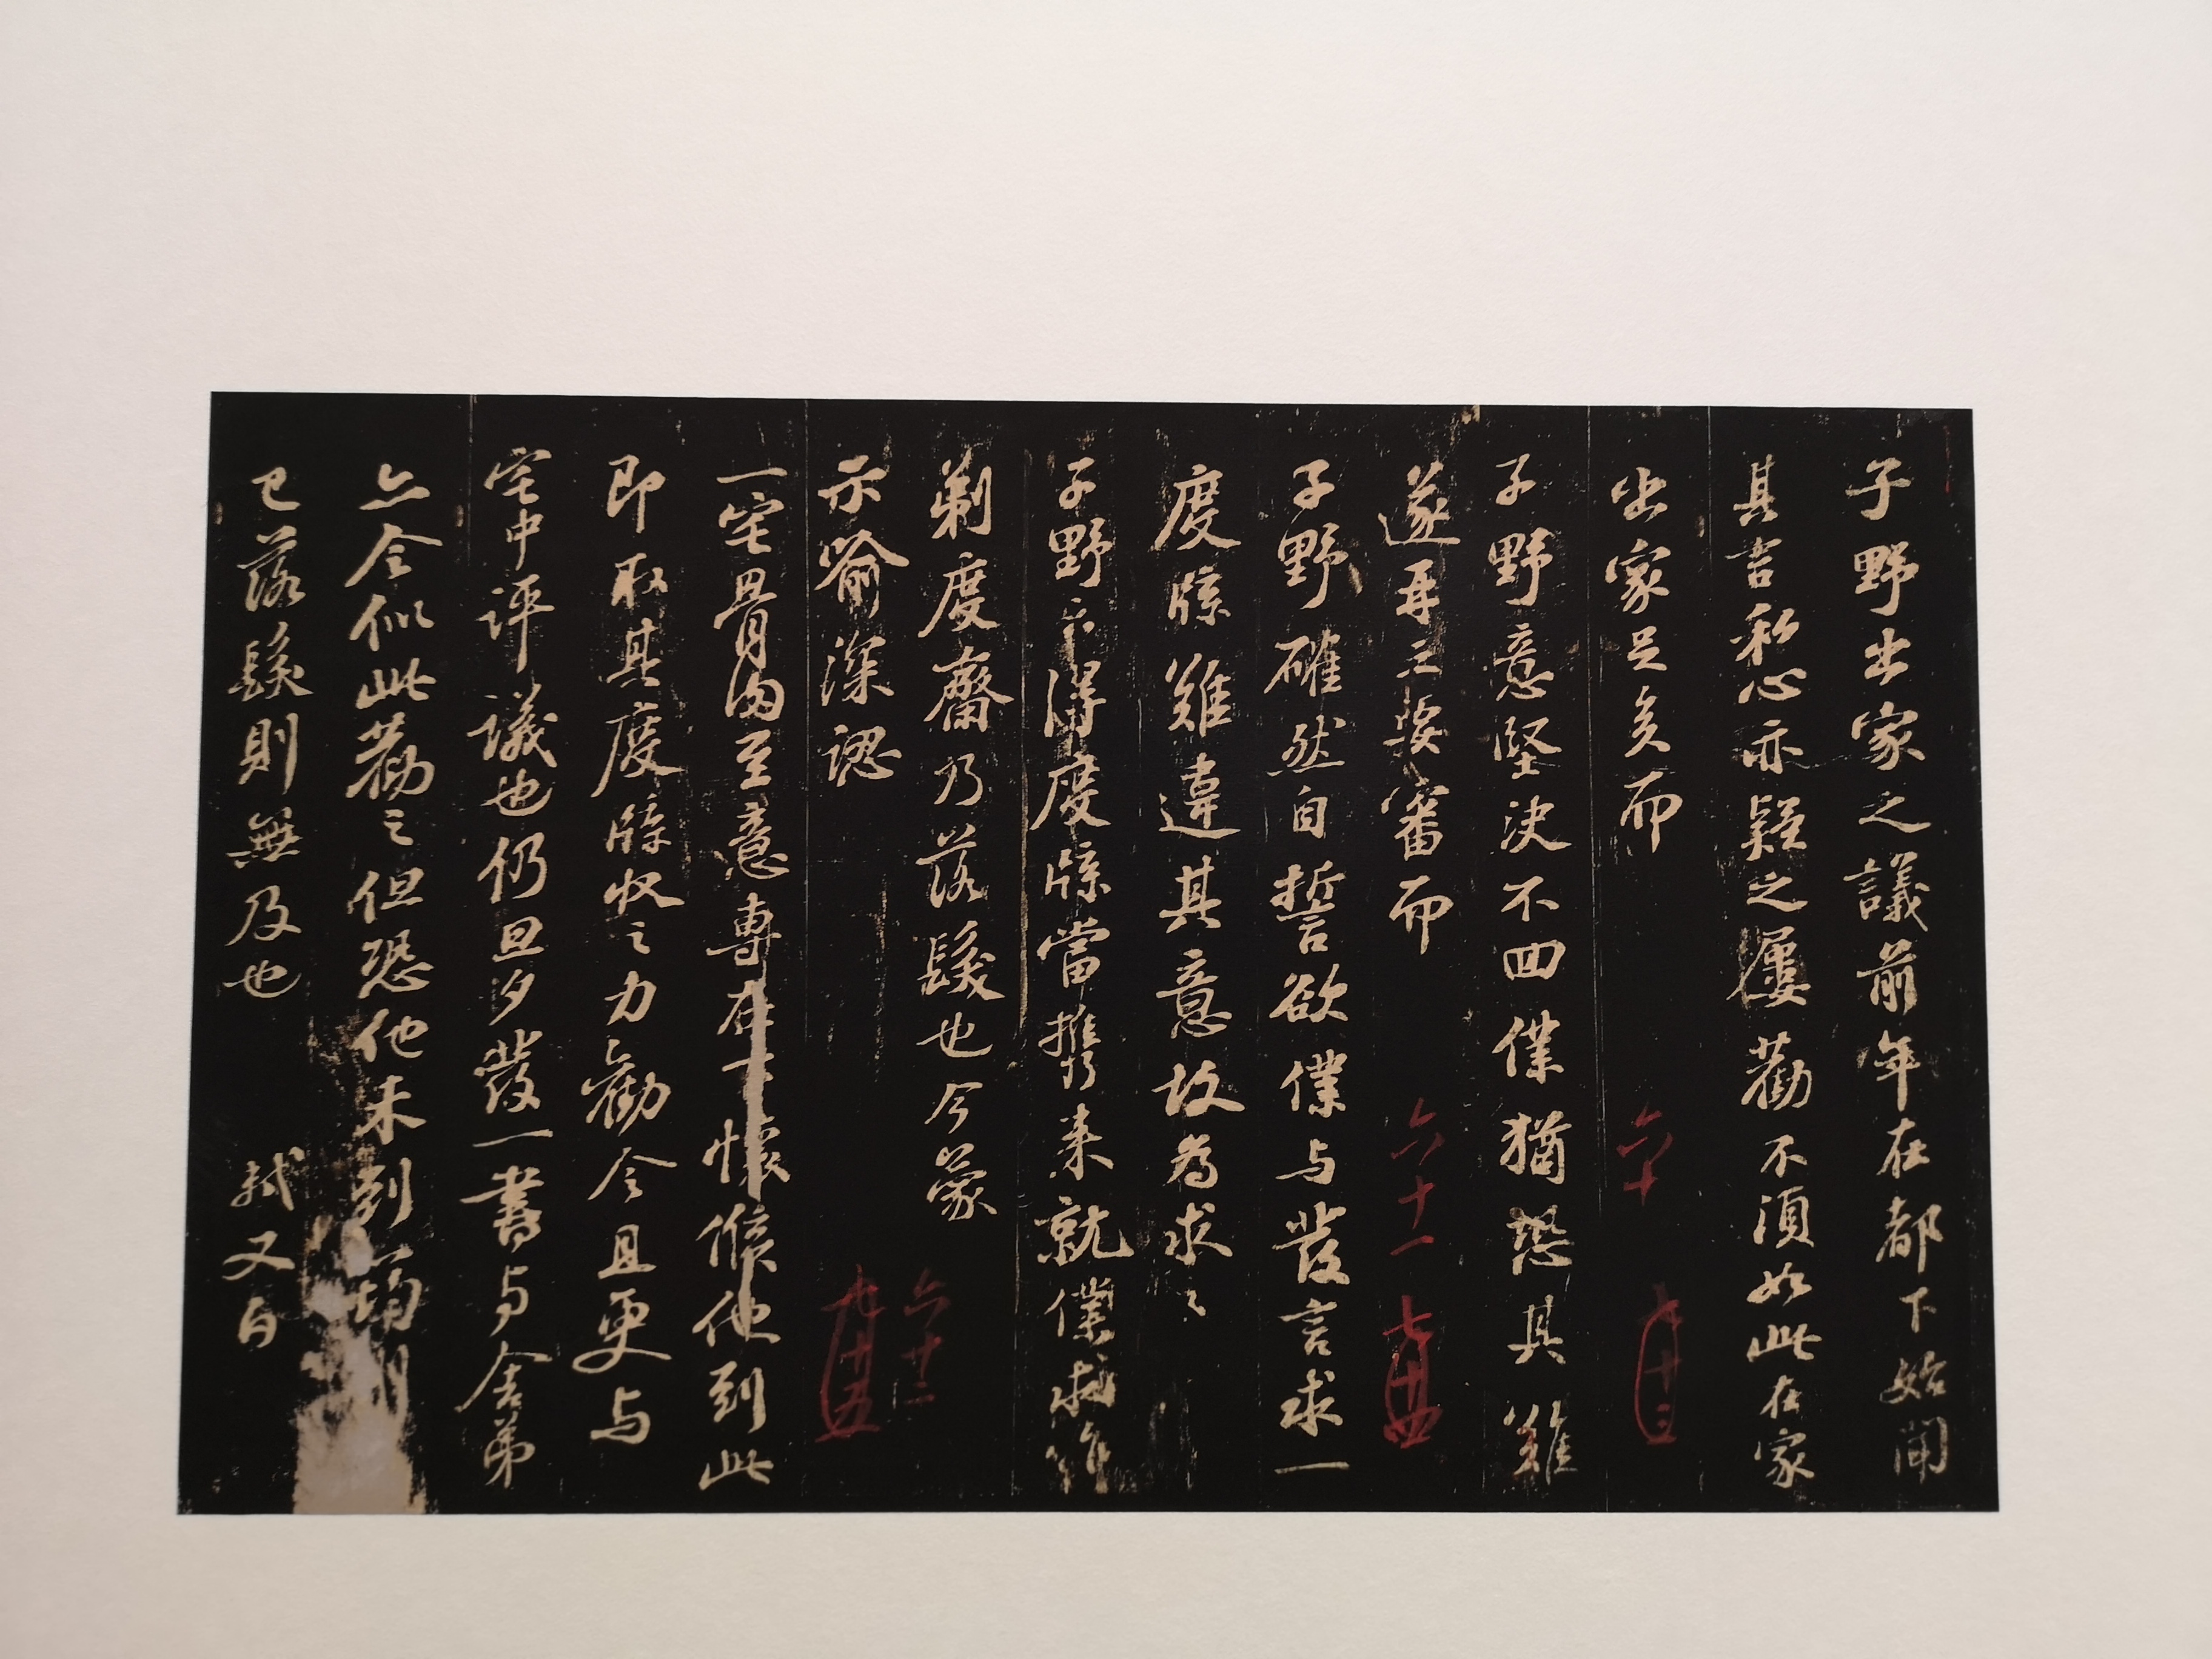 子野出家之議前年在都下始聞
其言私心亦疑之屢勸不須如此在家
出家足矣而
子野意堅決不回僕猶恐其難
遂再三要審而
子野確然自誓欲僕与發言求一
度牒難違其意故為求之
子野既得度牒當携来就僕求作
剃度齋乃落髮也今蒙
示喻深認
一宅骨肉至意專在下懷候他到此
即取其度牒收之力勸令且更与
宅中評議也仍旦夕發一書与舍弟
亦令似此勸之但恐他未到筠州
已落髮則無及也 軾又白
六十
六十一
六十二